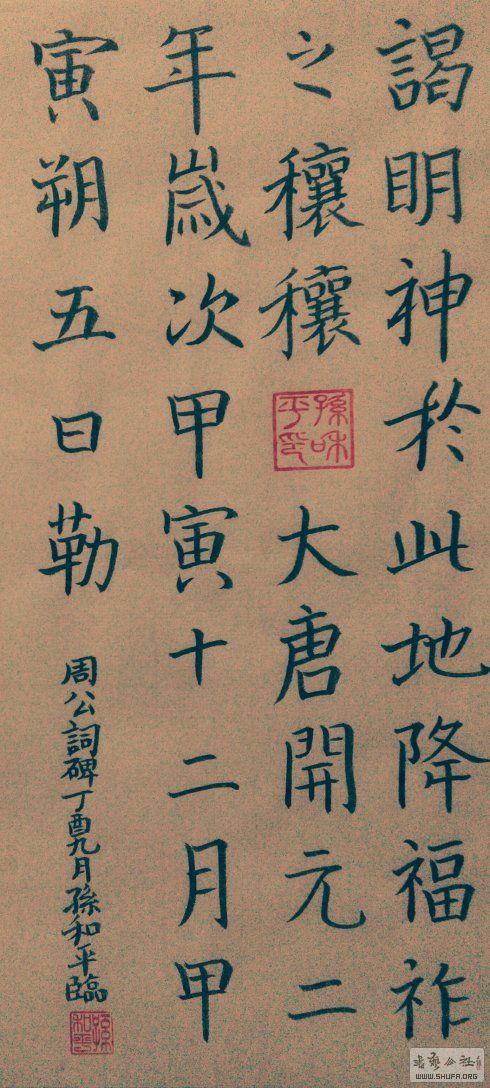 謁明神於此地降福祚
之穰穰
孫和平印
大唐開元二
年歲次甲寅十二月甲
寅朔五日勒
周公詞碑丁酉九月孫和平臨
孫和平印
书法公社
WWW.SHUFA.ORG